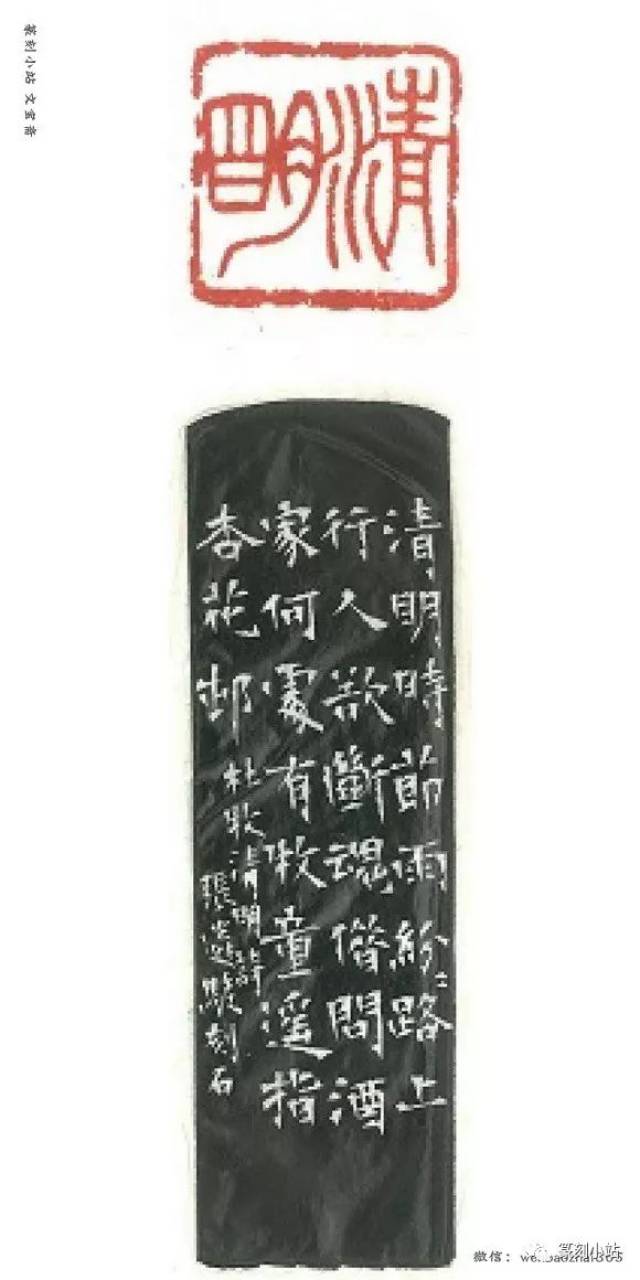 篆刻小站 文宝斋
清明
清明時節雨紛〻路上
行人欲斷魂借問酒
家何處有牧童遥指
杏花邨
杜牧清明詩
張遴駿刻石
微信：
篆刻小站